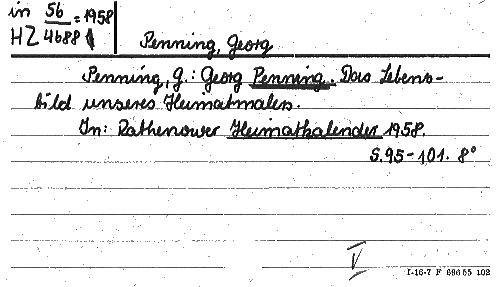 in 56 = 1958
HZ 4688
Penning, Georg
Penning, G.: Georg Penning. Das Lebens-
bild unseres Heimatmalers.
In: Rathenower Heimatkalender 1958.
S. 95-101. 8°
V
I-16-7 F 696 55 102